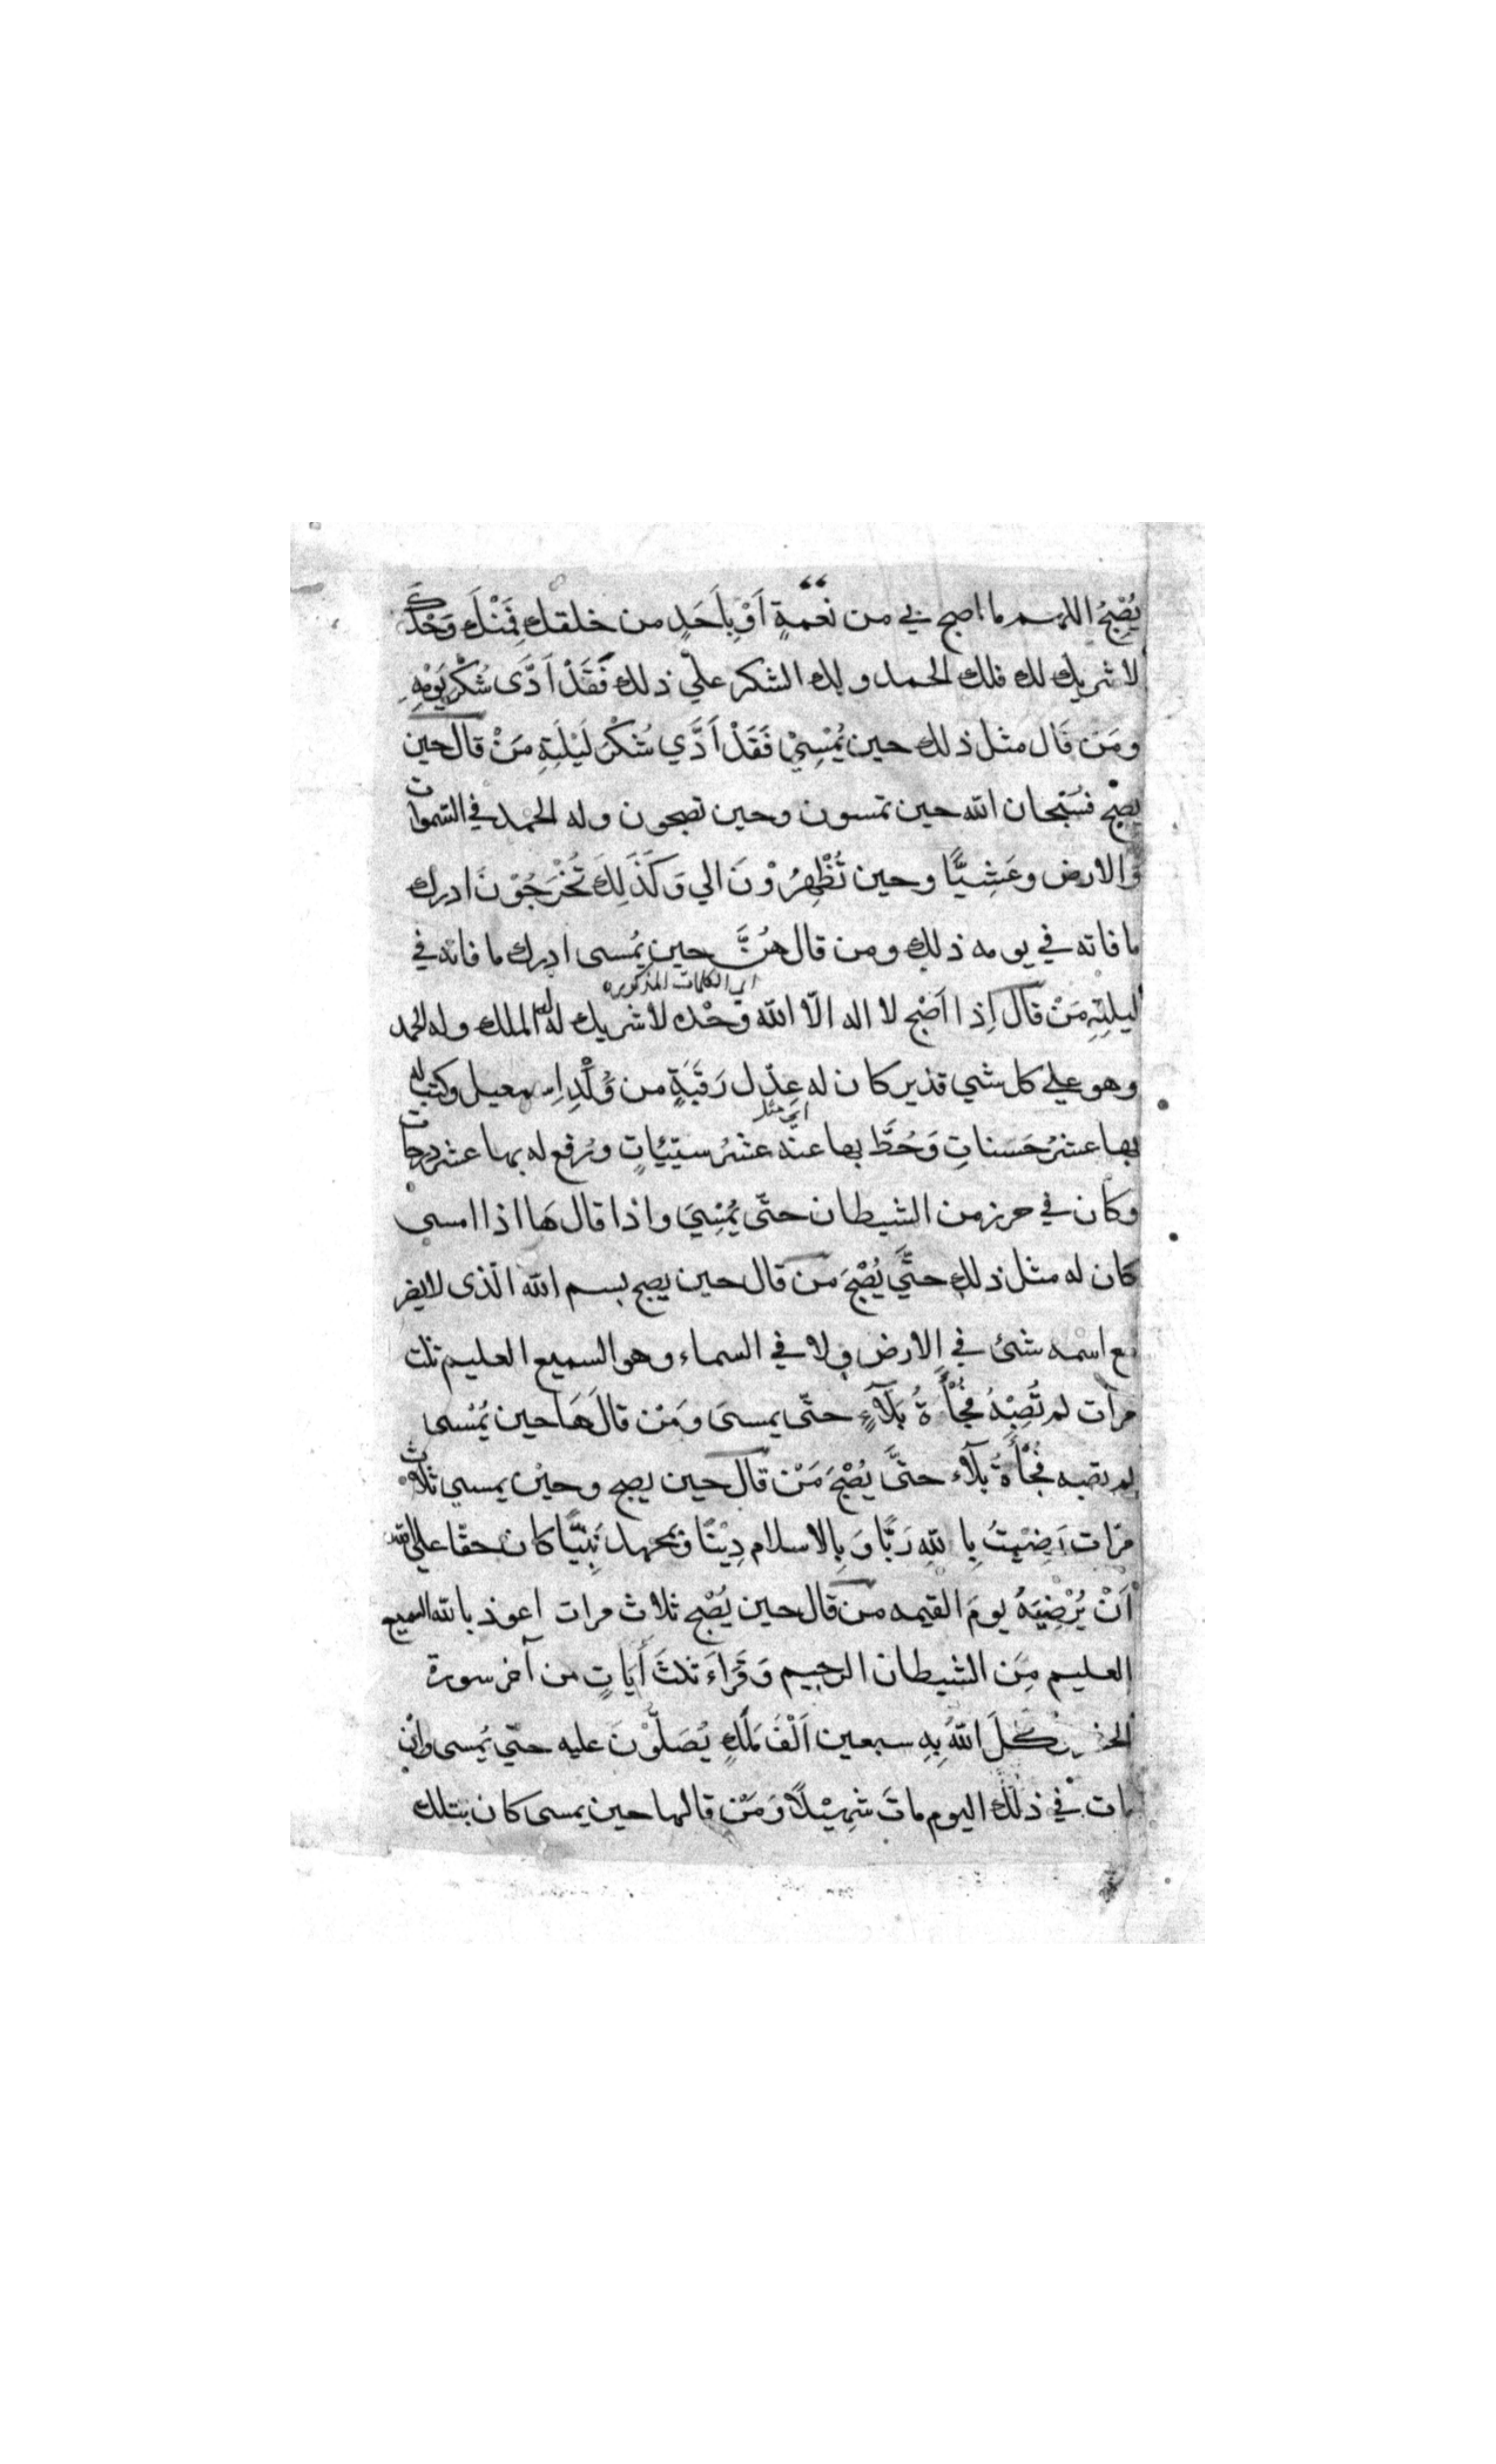 يُصْبِحُ اللهم ما اصبح بي من نعْمَةٍ اَوْبِاَحَدٍ من خلقك فَمِنْكَ وَحْدَكَ
لا شريك لك فلك الحمد ولك الشكر علي ذلك فَقَدْ اَدَّى شُكْرَ يَوْمِهِ
ومَنْ قَال مثل ذلك حين يُمْسِيْ فَقَدْ اَدَّي شُكْرَ لَيْلَتِهِ مَنْ قال حين
يصبْح فسُبْحان الله حين تمسون وحين تصبحون وله الحمد في السّموات
والارض وعَشِيًّا وحين تُظْهِرُوْنَ الي وَكَذَلِكَ تُخْرَجُوْنَ ادرك
ما فاته في يومه ذلك ومن قال هُنَّ حين يُمسى ادرك ما فاته في
اي الكلمات المذكوره
ليلتِهِ مَنْ قال اِذا اَصْبح لا اله الّا الله وَحْده لا شريك له له الملك وله الحمد
وهو علي كل شي قدير كان له عِدْل رَقَبَةٍ من وُلْدِ اِسمعيل وكتب له
اي مثل
بها عشرُ حَسَناتِ وَحُطَّ بها عنْه عشرُ سيّئاتٍ ورُفع له بها عشر درجات
وكان في حرز من الشيطان حتّى يُمْسِيَ واذا قال هَا اذا امسى
كان له مثل ذلك حتَّي يُصْبِحَ من قال حين يصبح بسم الله الّذى لا يضر
مع اسْمه شئ في الارض ولا في السماء وهو السميع العليم ثلث
مرات لم تُصِبْهُ فُجْأَةُ بَلَآءٍ حتّى يمسىَ ومَنْ قالَهَا حين يُمْسى
لم تصبه فُجْأَةُ بَلآء حتَّى يُصْبِحَ مَنْ قال حين يصبح وحيْن يمسي ثلاث
مرّات رَضِيْتُ بِاللهِ رَبًّا وَبِالاسلام دِيْنًا وبمحمد نَبِيًّا كان حقّا علي الله
اَنْ يُرْضِيَهُ يومَ القيمه من قال حين يُصْبح ثلاث مرات اعوذ بالله السميع
العليم مِن الشيطان الرجيم وَقَرَاءَ ثلثَ أَيَاتٍ من آخر سورة
الحشر وكلَ اللهُ بِهِ سبعين اَلْفَ مَلَكٍ يُصَلُّوْنَ عليه حتّي يُمسى وان
مات في ذلك اليوم ماتَ شهِيْدًا وَمَنْ قالها حين يمسى كان بتلك